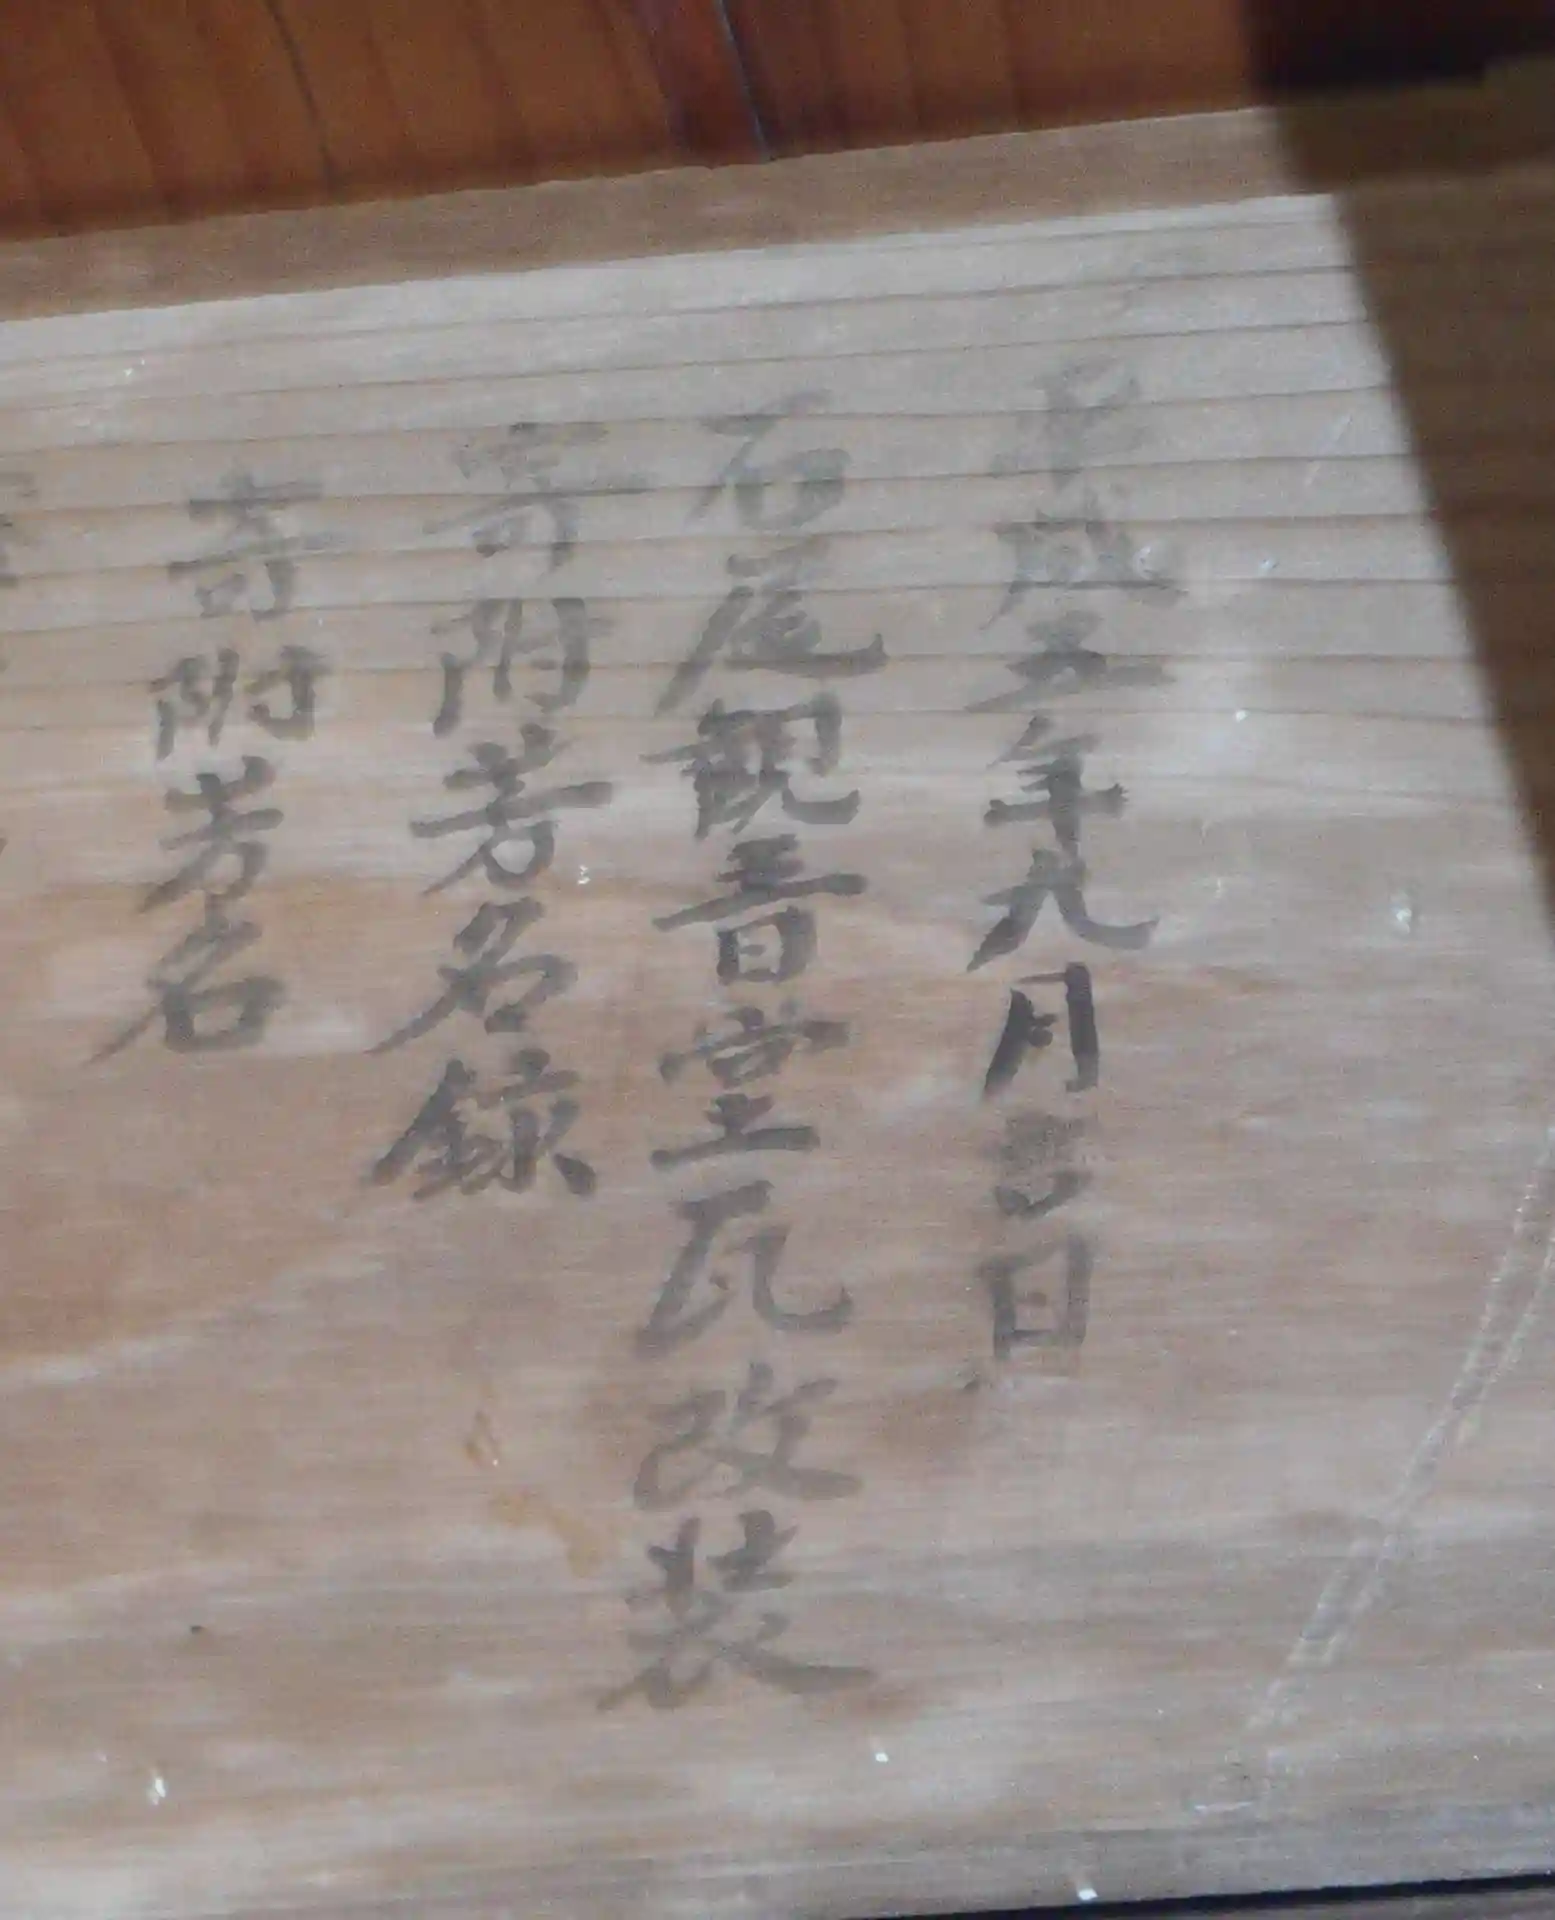 平成五年九月吉日
石尾観音堂瓦改装
寄附芳名錄
寄附芳名